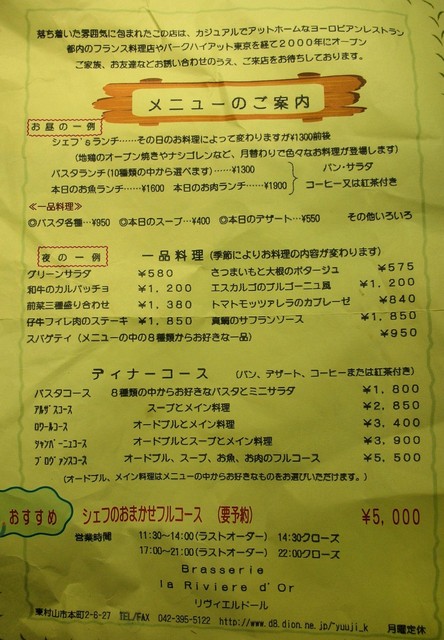 落ち着いた雰囲気に包まれたこの店は、カジュアルでアットホームなヨーロピアンレストラン
都内のフランス料理店やパークハイアット東京を経て2000年にオープン
ご家族、お友達などお誘い合わせのうえ、ご来店をお待ちしております。
メニューのご案内
お昼の一例
シェフ'sランチ……その日のお料理によって変わりますが¥1300前後
(地鶏のオープン焼きやナシゴレンなど、月替わりで色々なお料理が登場します)
パスタランチ(10種類の中から選べます)……¥1300
本日のお魚ランチ……¥1600 本日のお肉ランチ……¥1900
パン・サラダ
コーヒー又は紅茶付き
≪一品料理≫
◎パスタ各種…¥950 ◎本日のスープ…¥400 ◎本日のデザート…¥550 その他いろいろ
夜の一例 一品料理(季節によりお料理の内容が変わります)
グリーンサラダ ¥580 さつまいもと大根のポタージュ ¥575
和牛のカルパッチョ ¥1,200 エスカルゴのブルゴーニュ風 ¥1,200
前菜三種盛り合わせ ¥1,380 トマトモッツァレラのカプレーゼ ¥840
仔牛フィレ肉のステーキ ¥1,850 真鯛のサフランソース ¥1,850
スパゲティ(メニューの中の8種類からお好きな一品) ¥950
ディナーコース (パン、デザート、コーヒーまたは紅茶付き)
パスタコース 8種類の中からお好きなパスタとミニサラダ ¥1,800
アルザスコース スープとメイン料理 ¥2,850
ロワールコース オードブルとメイン料理 ¥3,400
シャンパーニュコース オードブルとスープとメイン料理 ¥3,900
プロヴァンスコース オードブル、スープ、お魚、お肉のフルコース ¥5,500
(オードブル、メイン料理はメニューの中からお好きなものをお選びいただけます。)
おすすめ シェフのおまかせフルコース (要予約) ¥5,000
営業時間 11:30~14:00(ラストオーダー) 14:30クローズ
17:00~21:00(ラストオーダー) 22:00クローズ
Brasserie
la Riviere d'Or
リヴィエルドール
東村山市本町2-6-27 TEL/FAX 042-395-5122 http://www.d8.dion.ne.jp/~yuuji_k 月曜定休